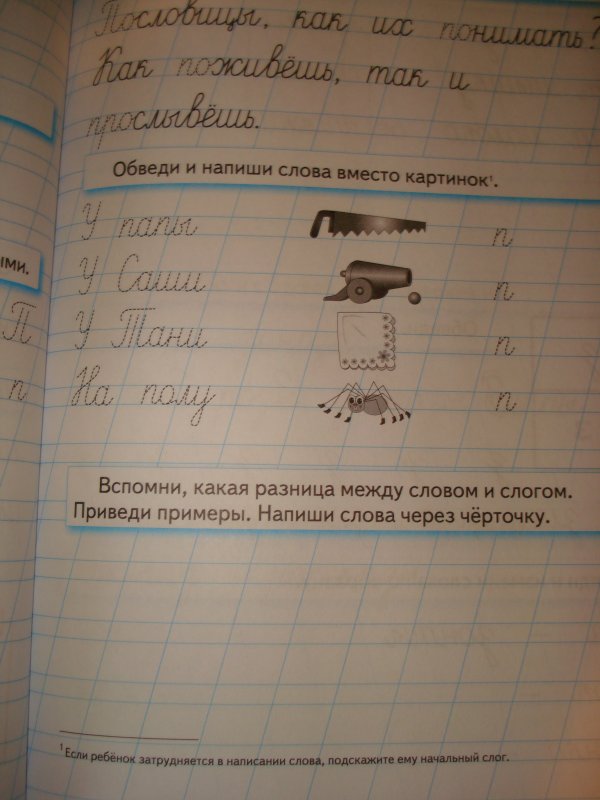 Пословицы, как их понимать?
Как поживёшь, так и
прослывёшь.
Обведи и напиши слова вместо картинок¹.
У папы п
У Саши п
ыми.
У Тани п
П
На полу п
п
Вспомни, какая разница между словом и слогом.
Приведи примеры. Напиши слова через чёрточку.
¹Если ребёнок затрудняется в написании слова, подскажите ему начальный слог.